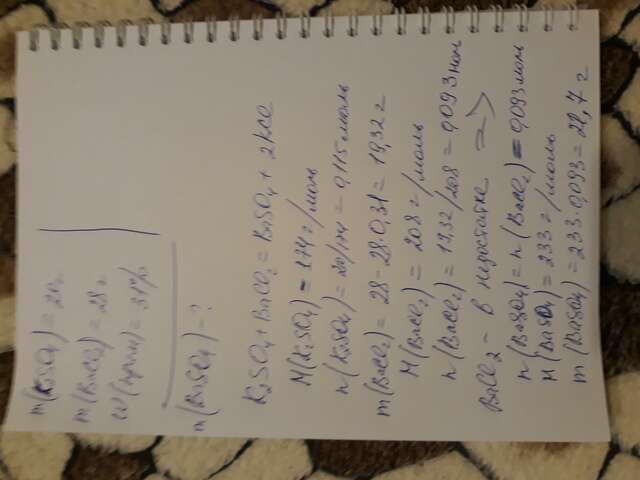 m(K2SO4) = 20г
m(BaCl2) = 28г
ω(прим) = 31%
m(BaSO4) - ?
K2SO4 + BaCl2 = BaSO4 + 2KCl
M(K2SO4) = 174 г/моль
n(K2SO4) = 20/174 = 0,115 моль
m(BaCl2) = 28 - 28·0,31 = 19,32 г
M(BaCl2) = 208 г/моль
n(BaCl2) = 19,32/208 = 0,093 мол
BaCl2 - в недостатке =>
n(BaSO4) = n(BaCl2) = 0,093 моль
M(BaSO4) = 233 г/моль
m(BaSO4) = 233·0,093 = 21,7 г